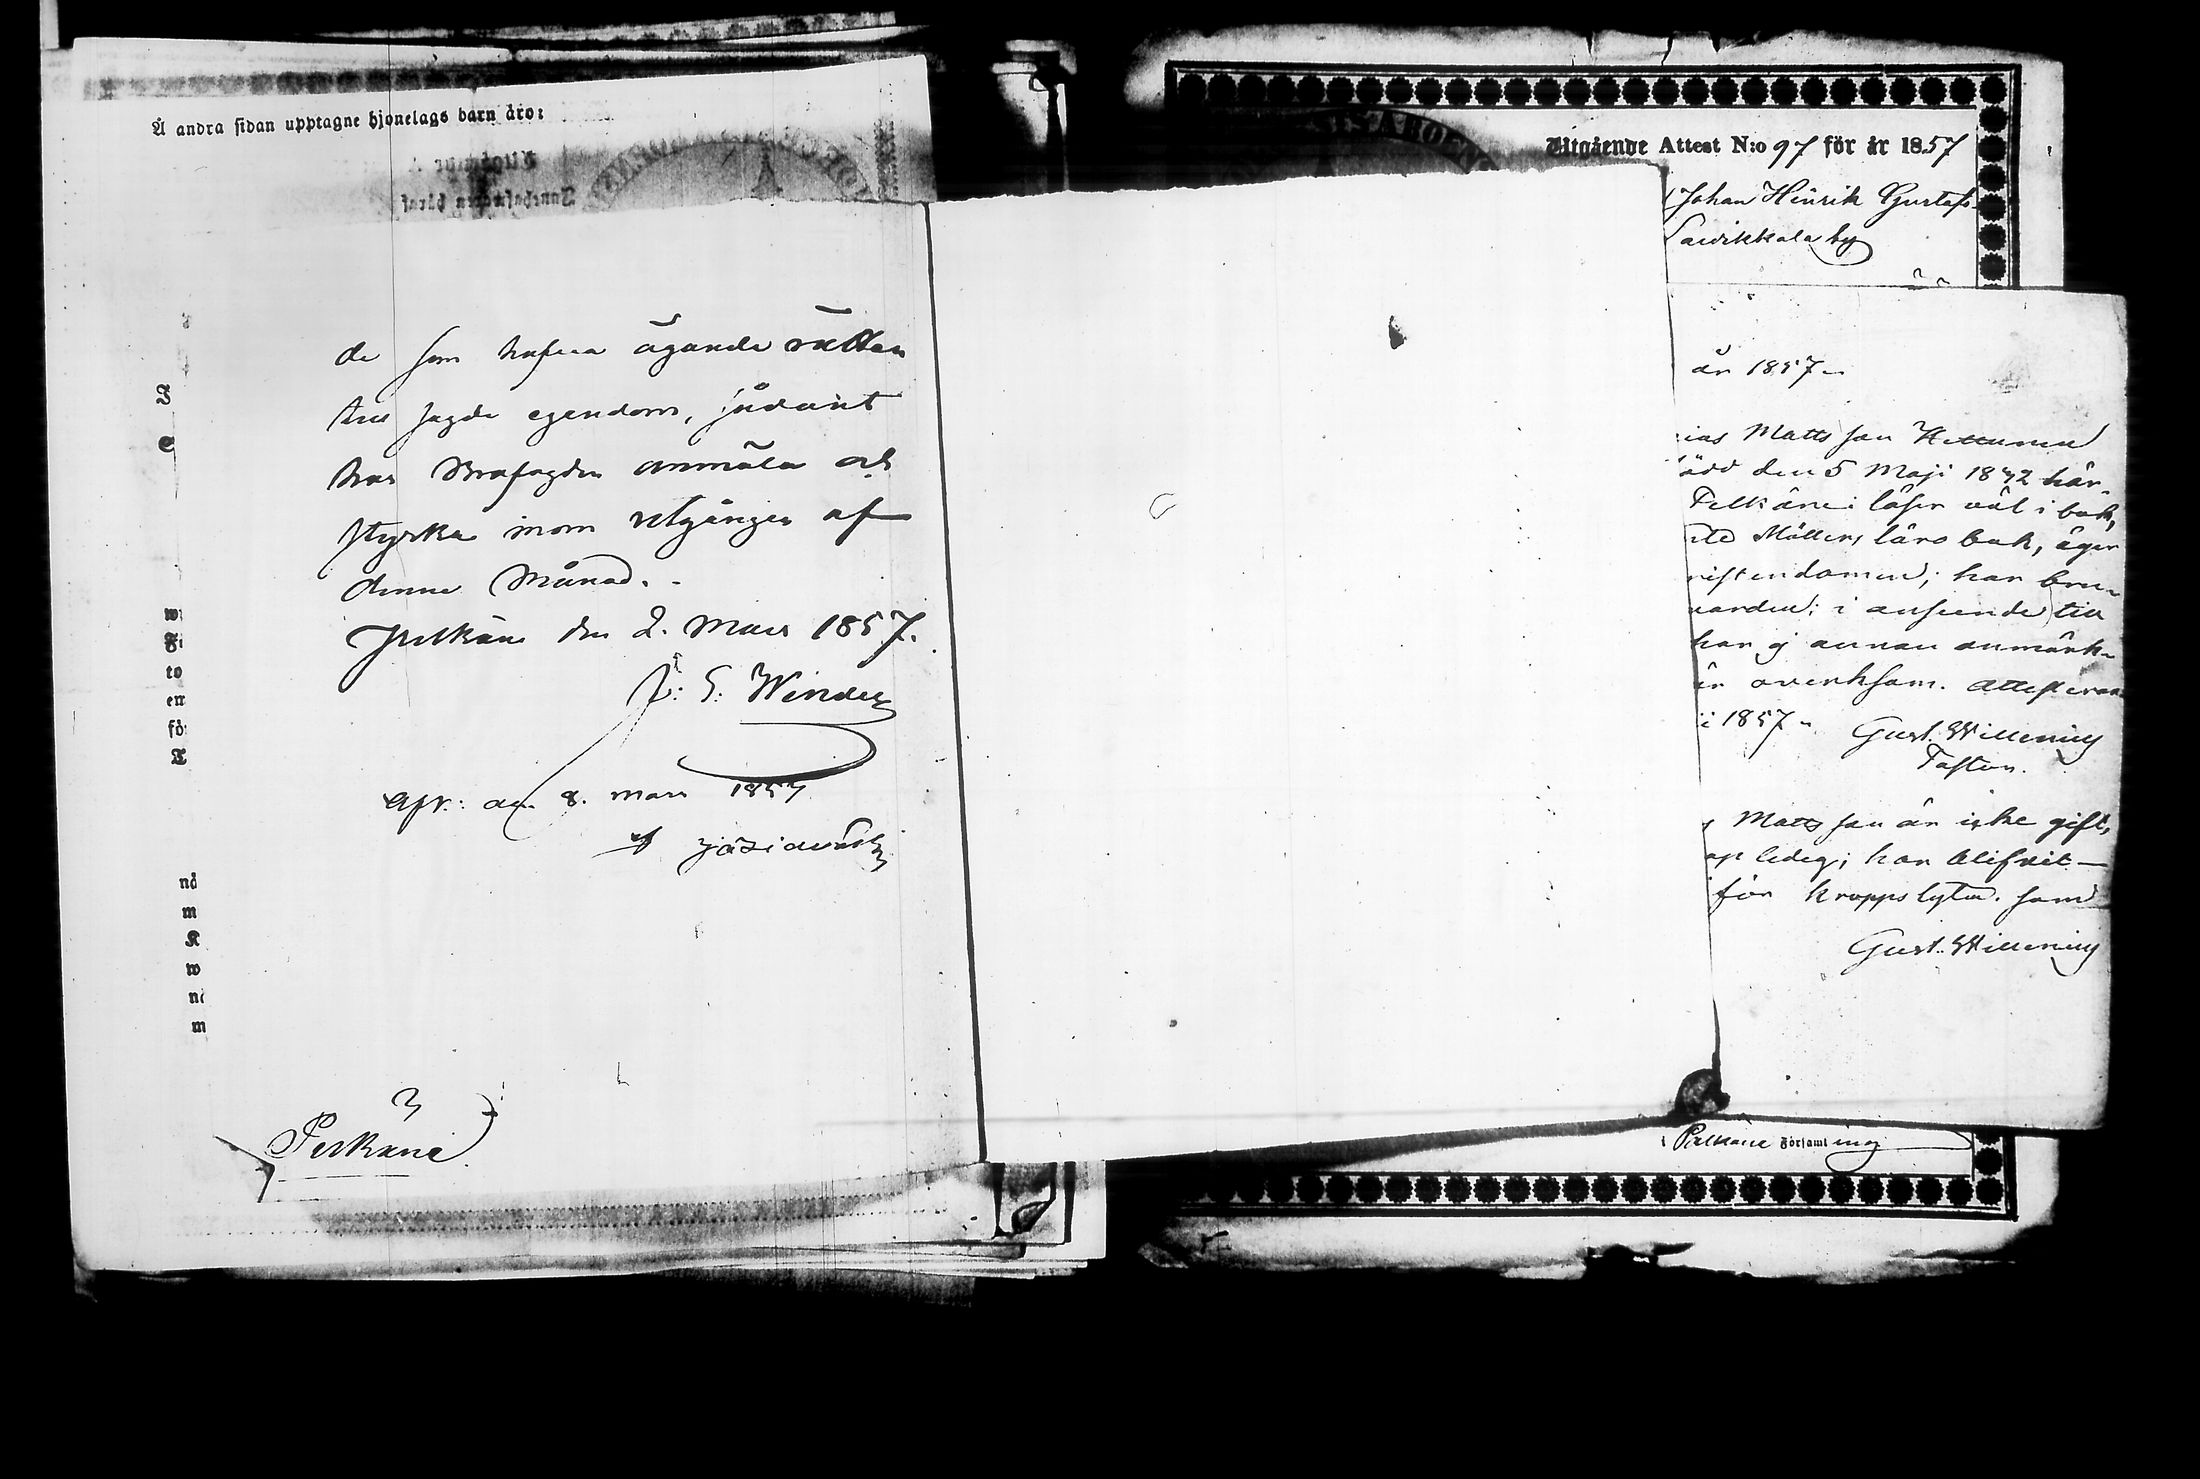 Å andra sidan upptagne hjonelags barn äro:
de som hafva ägande rätten
till sagde egendom, sådant
hos anmäla och
styrka inom utgången af
denne Månad.
Pelkäne den 2. Mars 1857.
Winder
den 8. mars 1857
I
e
w
F
to
em
fö
T
nå
m
K
w
n
m
Pelkäne
Utgående Attest N:o 97 för år 1857
Johan Hinrik Gustafs
Laivikkala by
år 1857
ias Mattsson
ödd den 5 Maji 1842 här
Pelkäne; läser väl i bok,
Möllers läro bok, äger
ristendomen; har bru-
arden; i anseende till
har ej annan anmärk-
är overksam. Attesterar
i 1857 Gust. Willenius
Pastor.
Mattsson är icke gift,
ledig; har blifvit
för kroppslyten. samd
Gust. Willenius
i Pelkäne Församling